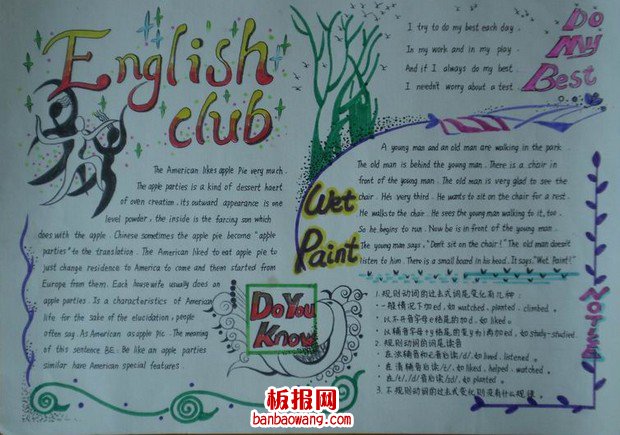 English
club
The American likes apple Pie very much.
The apple parties is a kind of dessert haert
of oven creation. its outward appearance is one
level powder, the inside is the farcing son which
does with the apple. Chinese sometimes the apple pie become "apple
parties" to the translation. The American liked to eat apple pie to
just change residence to America to come and them started from
Europe from them. Each housewife usually does an
apple parties. Is a characteristics of American
life for the sake of the elucidation, people
often say. As American as apple pic. The meaning
of this sentence BE. Be like an apple parties
similar hare American special features.
Do You
Know
I try to do my best each day.
In my work and in my play.
And if I always do my best.
I needn't worry about a test.
Do
My
Best
Wet
Paint
A young man and an old man are walking in the park.
The old man is behind the young man. There is a chair in
front of the young man. The old man is very glad to see the
chair. He's very third. He wants to sit on the chair for a rest.
He walks to the chair. He sees the young man walking to it, too.
So he begins to run. Now be is in front of the young man.
The young man says, "Don't sit on the chair!" The old man doesn't
listen to him. There is a small board in his head. It says "Wet Paint!"
1. 规则动词的过去式词是变化有几种:
· 一般情况下加ed, 如 watched, planted, climbed。
· 以不开音字母e结尾的加d, 如 liked。
· 以辅音字母+y结尾的变y为i再加ed, 如 study-studied。
2. 规则动词的词是读音
· 在浊辅音和元音后读/d/, 如 lived, listened。
· 在清辅音后读/t/, 如 liked, helped, watched。
· 在/t/, /d/音后读/id/, 如 planted。
3. 不规则动词的过去式变化则没有什么规律。
板报网
banbaowang.com